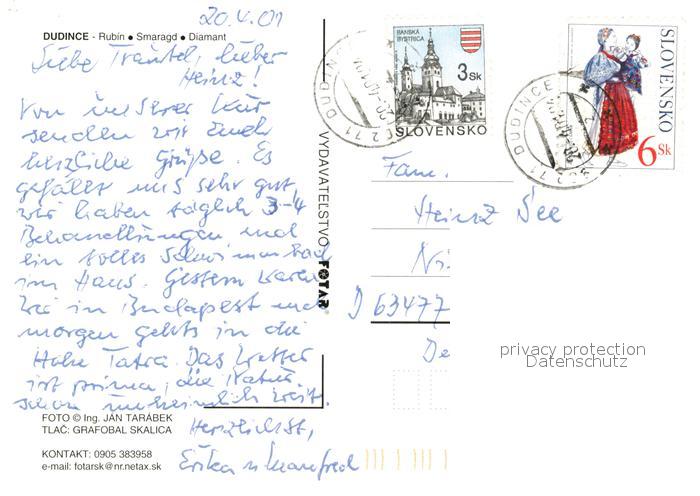 20.4.01
DUDINCE - Rubín ● Smaragd ● Diamant
Liebe Trautel, lieber
Heinz!
Von unserer Kur
senden wir Euch
herzliche Grüße. Es
gefällt uns sehr gut,
wir haben täglich 3-4
Behandlungen und
ein tolles Schwimmbad
im Haus. Gestern waren
wir in Budapest und
morgen gehts in die
Hohe Tatra. Das Wetter
ist prima, die Natur
schon unheimlich weit.
Herzlichst,
Erika u. Manfred
FOTO © Ing. JÁN TARÁBEK
TLAČ: GRAFOBAL SKALICA
KONTAKT: 0905 383958
e-mail: fotarsk@nr.netax.sk
VYDAVATEĽSTVO FOTAR
BANSKÁ
BYSTRICA
3 Sk
SLOVENSKO
SLOVENSKO
6 Sk
DUDINCE
962 71
DUDINCE
962 71
Fam.
Heinz See
Nr.
D 63477
privacy protection
Datenschutz